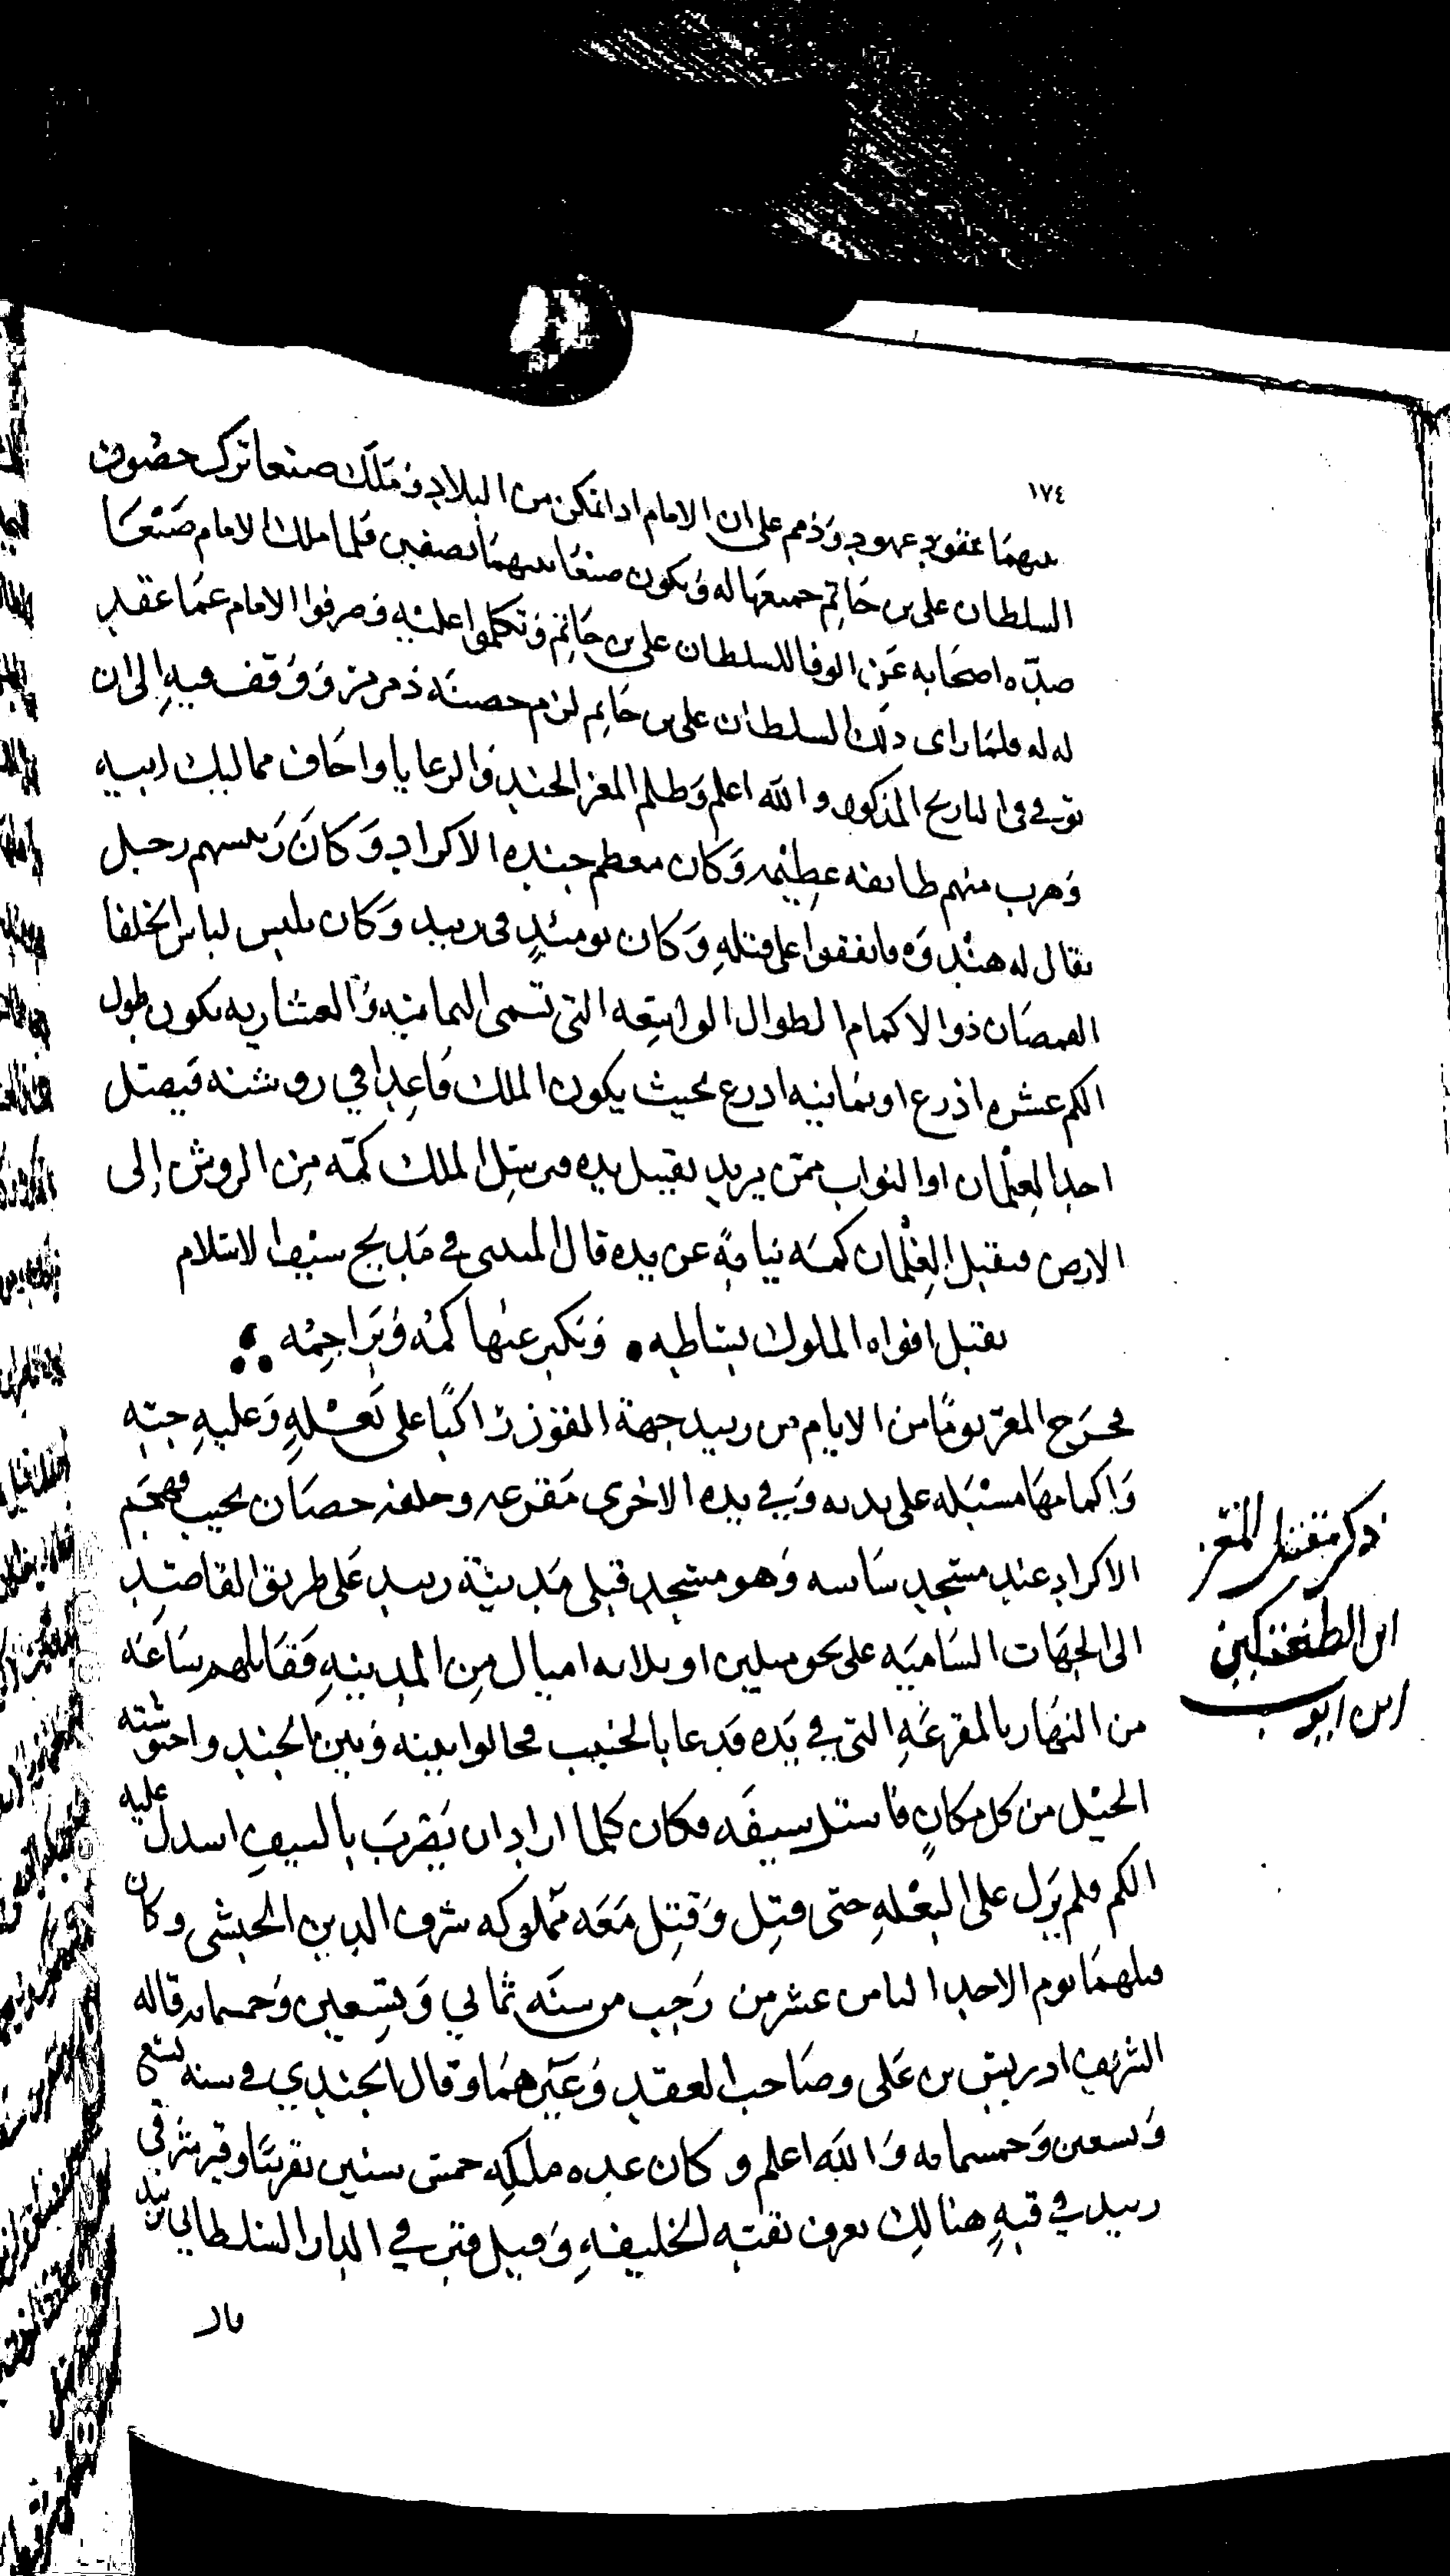 ١٧٤
بينهما عقود عهود وذمم على ان الامام اذا تمكن من البلاد وملك صنعا ترك حصون
السلطان علي بن حاتم جميعها له ويكون صنعا بينهما نصفين فلما ملك الامام صنعا
صدّه اصحابه عن الوفا للسلطان علي بن حاتم وتكلموا عليه وصرفوا الامام عما عقد
له له فلما راى ذلك السلطان علي بن حاتم لزم حصنه ذمرمر ووقف فيه الى ان
توفي في التاريخ المذكور والله اعلم وظلم المعز الجند والرعايا واخاف مماليك ابيه
وهرب منهم طايفه عظيمه وكان معظم جنده الاكراد وكان رييسهم رجل
يقال له هندوه فاتفقوا على قتله وكان يومئذٍ في زبيد وكان يلبس لباس الخلفا
القمصان ذوا الاكمام الطوال الواسعه التي تسمى الثمانيه والعشاريه يكون طول
الكم عشره اذرع او ثمانيه اذرع بحيث يكون الملك قاعدا في روشنه فيصل
احد الغلمان او النواب ممن يريد تقبيل يده فيرسل الملك كمّه من الروشن إلى
الارض فيقبل الغلمان كمه نيابةً عن يده قال المتنبي في مديح سيف الاسلام
يقبل افواه الملوك بساطه • وتكبر عنها كمه وبراجمه
فخرج المعز يومًا من الايام من زبيد جهة المفوز راكبًا على بغلهٍ وعليه جبته
واكمامها مسبله على يديه وفي يده الاخرى مقرعه وخلفه حصان نجيب فهجم
الاكراد عند مسجد شاشه وهو مسجد قبلي مدينة زبيد على طريق القاصد
الى الجهات الشاميه على نحو ميلين او ثلاثه اميال من المدينه فقاتلهم ساعه
من النهار بالمقرعه التي في يده فدعا بالجنيب فحالوا بينه وبين الجند واحتوشته
الخيل من كل مكان فاستل سيفه فكان كلما اراد ان يضرب بالسيف انسدل عليه
الكم فلم يزل على البغله حتى قتل وقتل معه مملوكه شرف الدين الحبشي وكان
قتلهما يوم الاحد الثامن عشر من رجب من سنه ثماني وتسعين وخمسمايه قاله
الشريف ادريس بن على وصاحب العقد وغيرهما وقال الجندي في سنه تسع
وتسعين وخمسمايه والله اعلم وكان عده ملكه خمس سنين تقريبا وقبر شرقي
زبيد في قبهٍ هنالك تعرف بقبه الخليفه وقيل قبر في الدار السلطاني بزبيد
قال
ذكر مقتل المعز
ابن الطغتكين
ابن ايوب